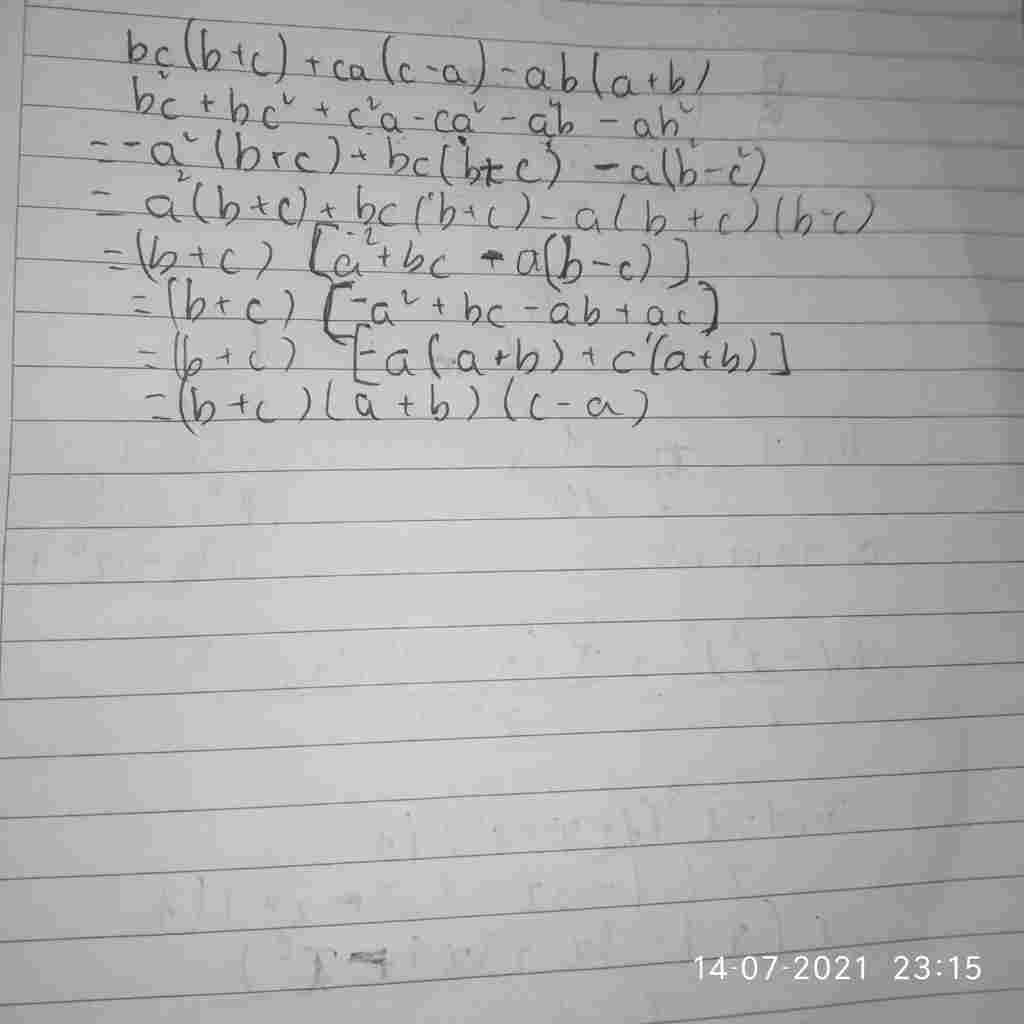 bc(b+c)+ca(c-a)-ab(a+b)
b²c + bc² + c²a - ca² - a²b - ab²
= -a²(b+c) + bc(b+c) - a(b²-c²)
= a²(b+c) + bc(b+c) - a(b+c)(b-c)
= (b+c) [-a²+bc - a(b-c)]
= (b+c) [-a² + bc - ab + ac]
= (b+c) [-a(a+b) + c(a+b)]
= (b+c)(a+b)(c-a)
14-07-2021 23:15